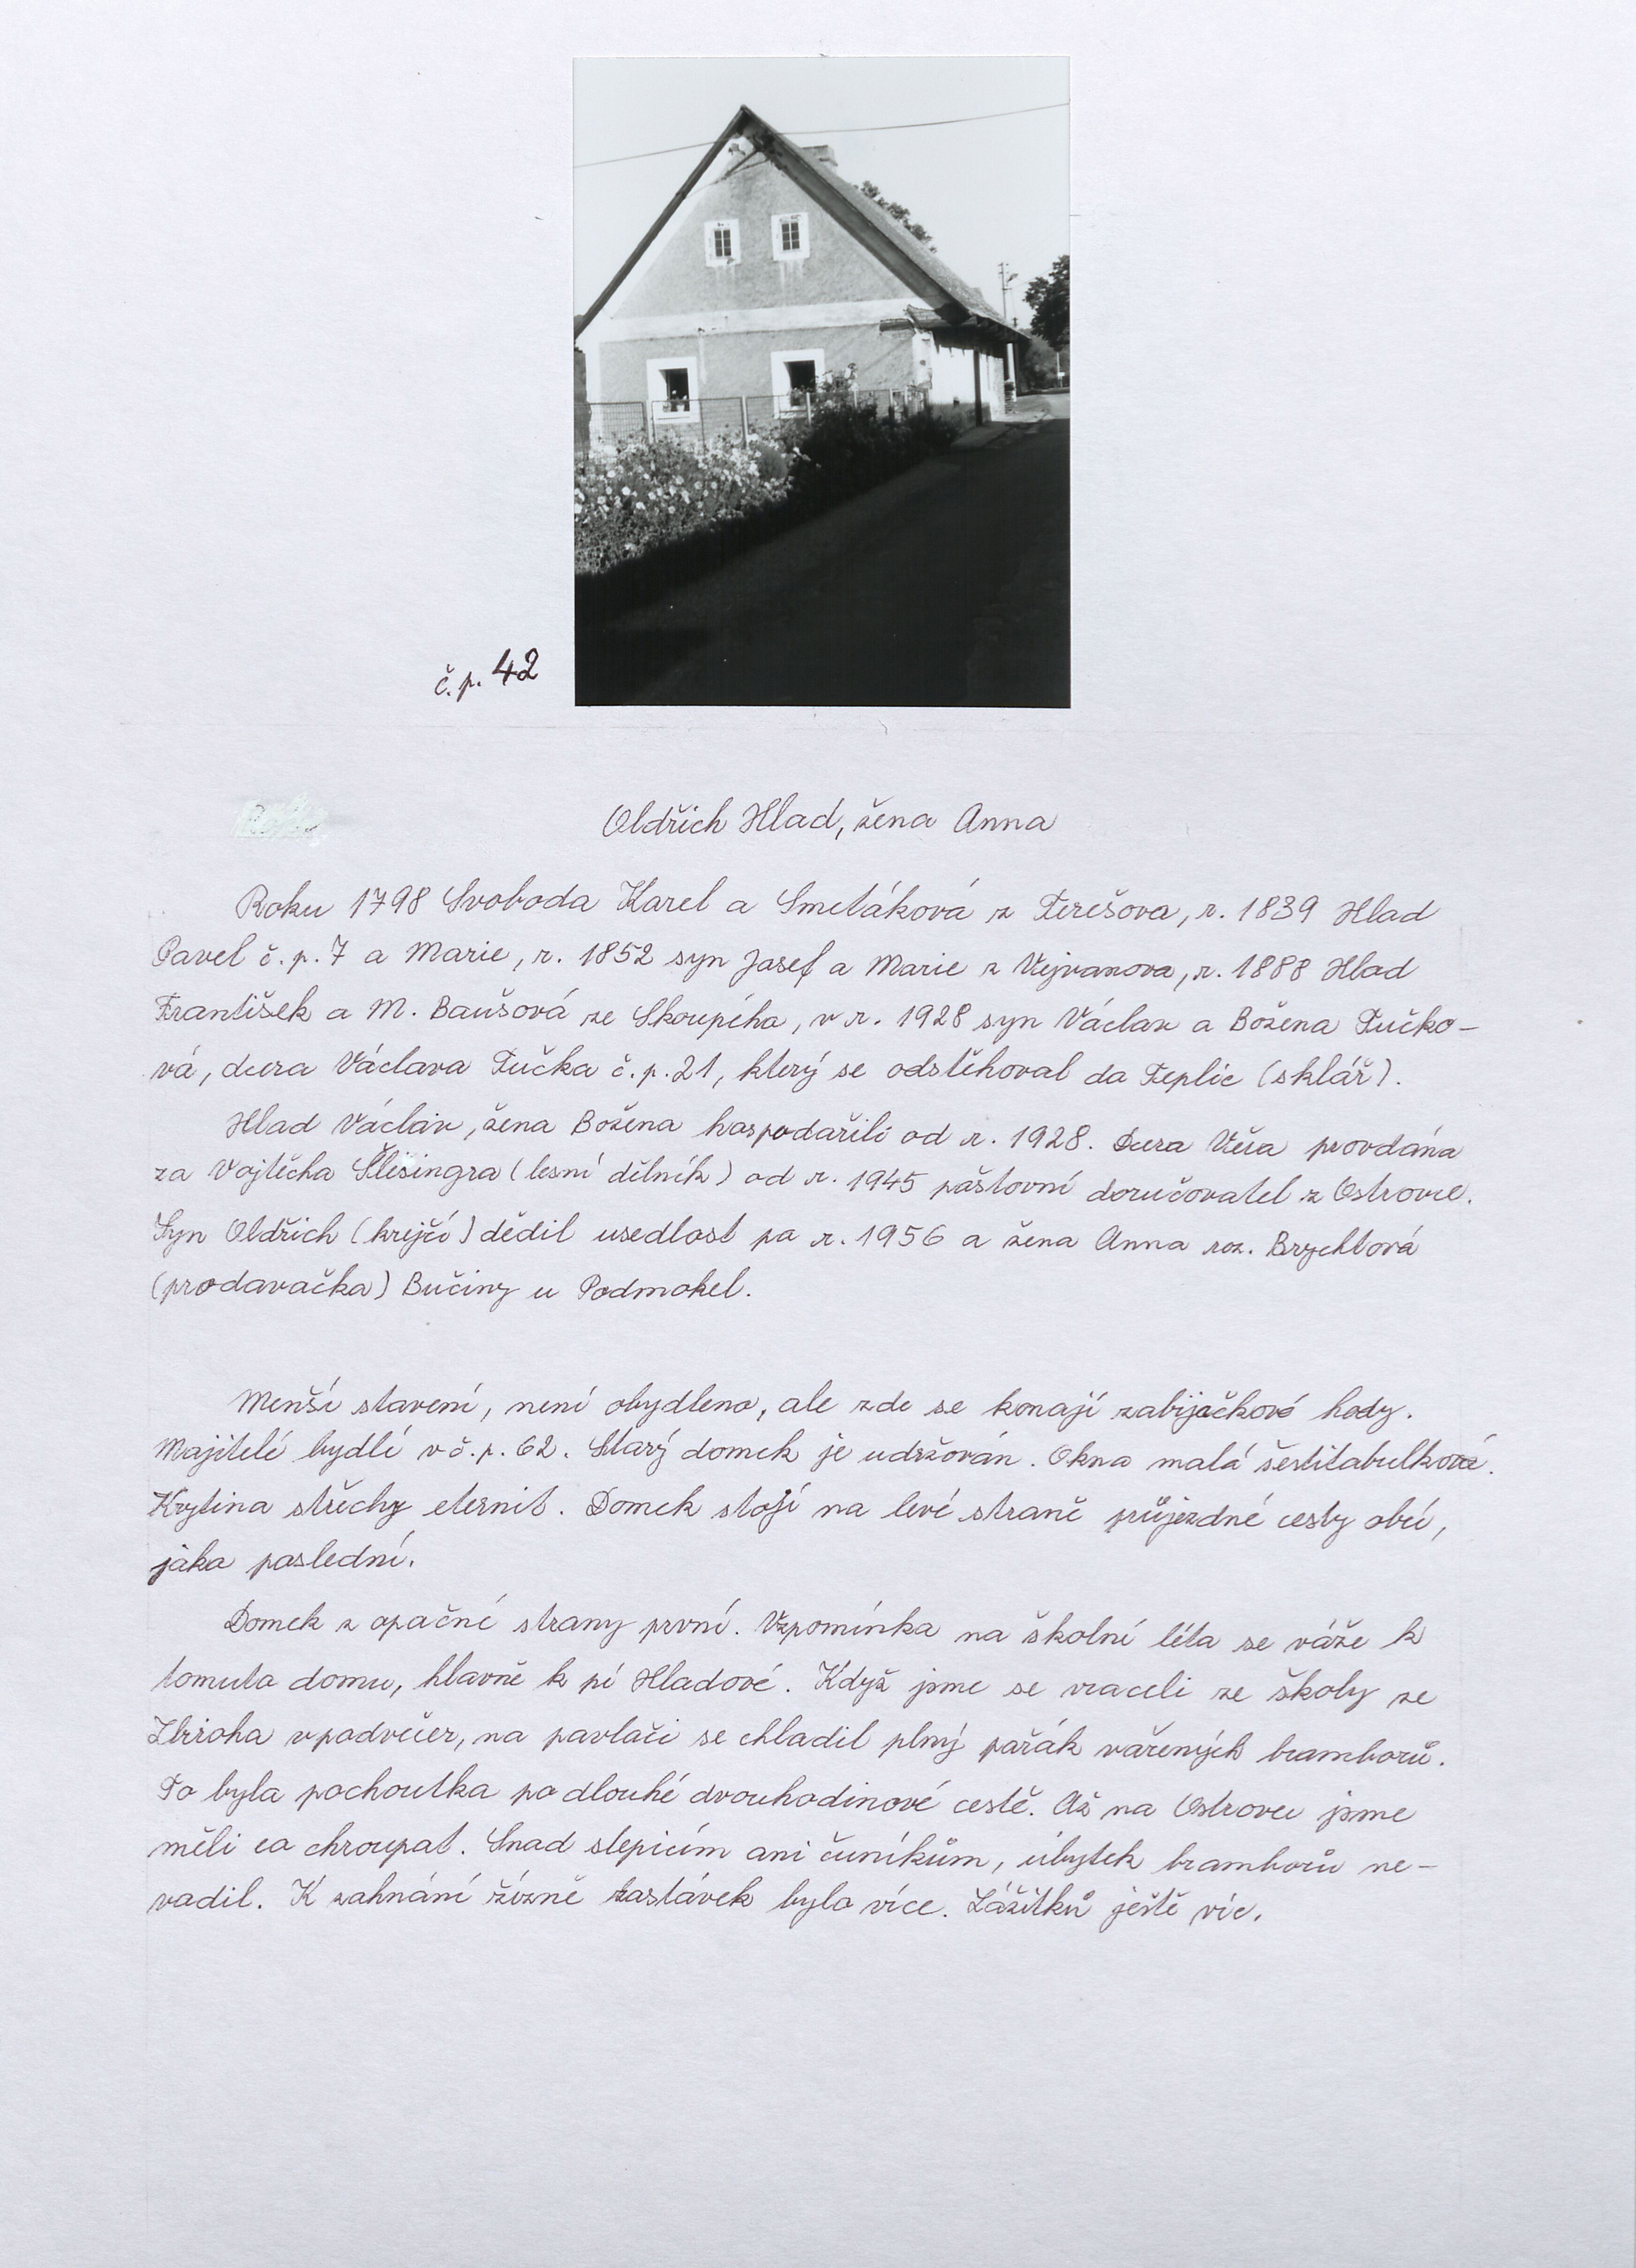 č.p. 42
Oldřich Hlad, žena Anna
Roku 1798 Svoboda Karel a Smetáková z Terešova, r. 1839 Hlad
Pavel č.p. 7 a Marie, r. 1852 syn Josef a Marie z Vejvanova, r. 1888 Hlad
František a M. Baušová ze Skoupého, v r. 1928 syn Václav a Božena Tučko-
vá, dcera Václava Tučka č.p. 21, který se odstěhoval do Teplic (sklář).
Hlad Václav, žena Božena hospodařili od r. 1928. Dcera Věra provdána
za Vojtěcha Šlesingra (lesní dělník) od r. 1945 poštovní doručovatel z Ostrovce.
Syn Oldřich (krejčí) dědil usedlost po r. 1956 a žena Anna roz. Brychtová
(prodavačka) Bučiny u Podmokel.
Menší stavení, není obydleno, ale zde se konají zabijačkové hody.
Majitelé bydlí v č.p. 62. Starý domek je udržován. Okna malá šestitabulková.
Krytina střechy eternit. Domek stojí na levé straně průjezdné cesty obcí,
jako poslední.
Domek z opačné strany první. Vzpomínka na školní léta se váže k
tomuto domu, hlavně k pí Hladové. Když jsme se vraceli ze školy ze
Zbiroha v podvečer, na pavlači se chladil plný pařák vařených bramborů.
To byla pochoutka po dlouhé dvouhodinové cestě. Až na Ostrovec jsme
měli co chroupat. Snad slepicím ani čuníkům, úbytek bramborů ne-
vadil. K zahnání žízně zastávek bylo více. Zážitků ještě víc.